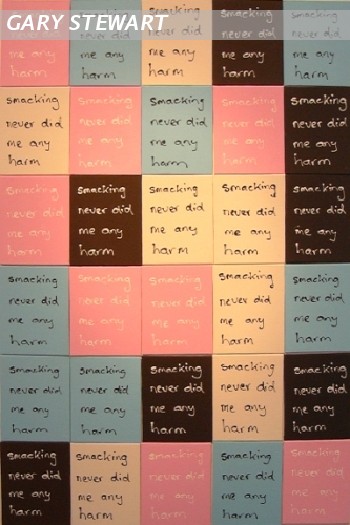 GARY STEWART
me any
harm
me any
harm
smacking
never did
me any
harm
never did
me any
harm
never did
me any
harm
smacking
never did
me any
harm
smacking
never did
me any
harm
smacking
never did
me any
harm
smacking
never did
me any
harm
smacking
never did
me any
harm
smacking
never did
me any
harm
smacking
never did
me any
harm
smacking
never did
me any
harm
smacking
never did
me any
harm
smacking
never did
me any
harm
smacking
never did
me any
harm
smacking
never did
me any
harm
smacking
never did
me any
harm
smacking
never did
me any
harm
smacking
never did
me any
harm
smacking
never did
me any
harm
smacking
never did
me any
harm
smacking
never did
me any
harm
smacking
never did
me any
harm
smacking
never did
me any
harm
smacking
never did
me any
harm
smacking
never did
me any
harm
smacking
never did
me any
harm
smacking
never did
me any
harm
smacking
never did
me any
harm